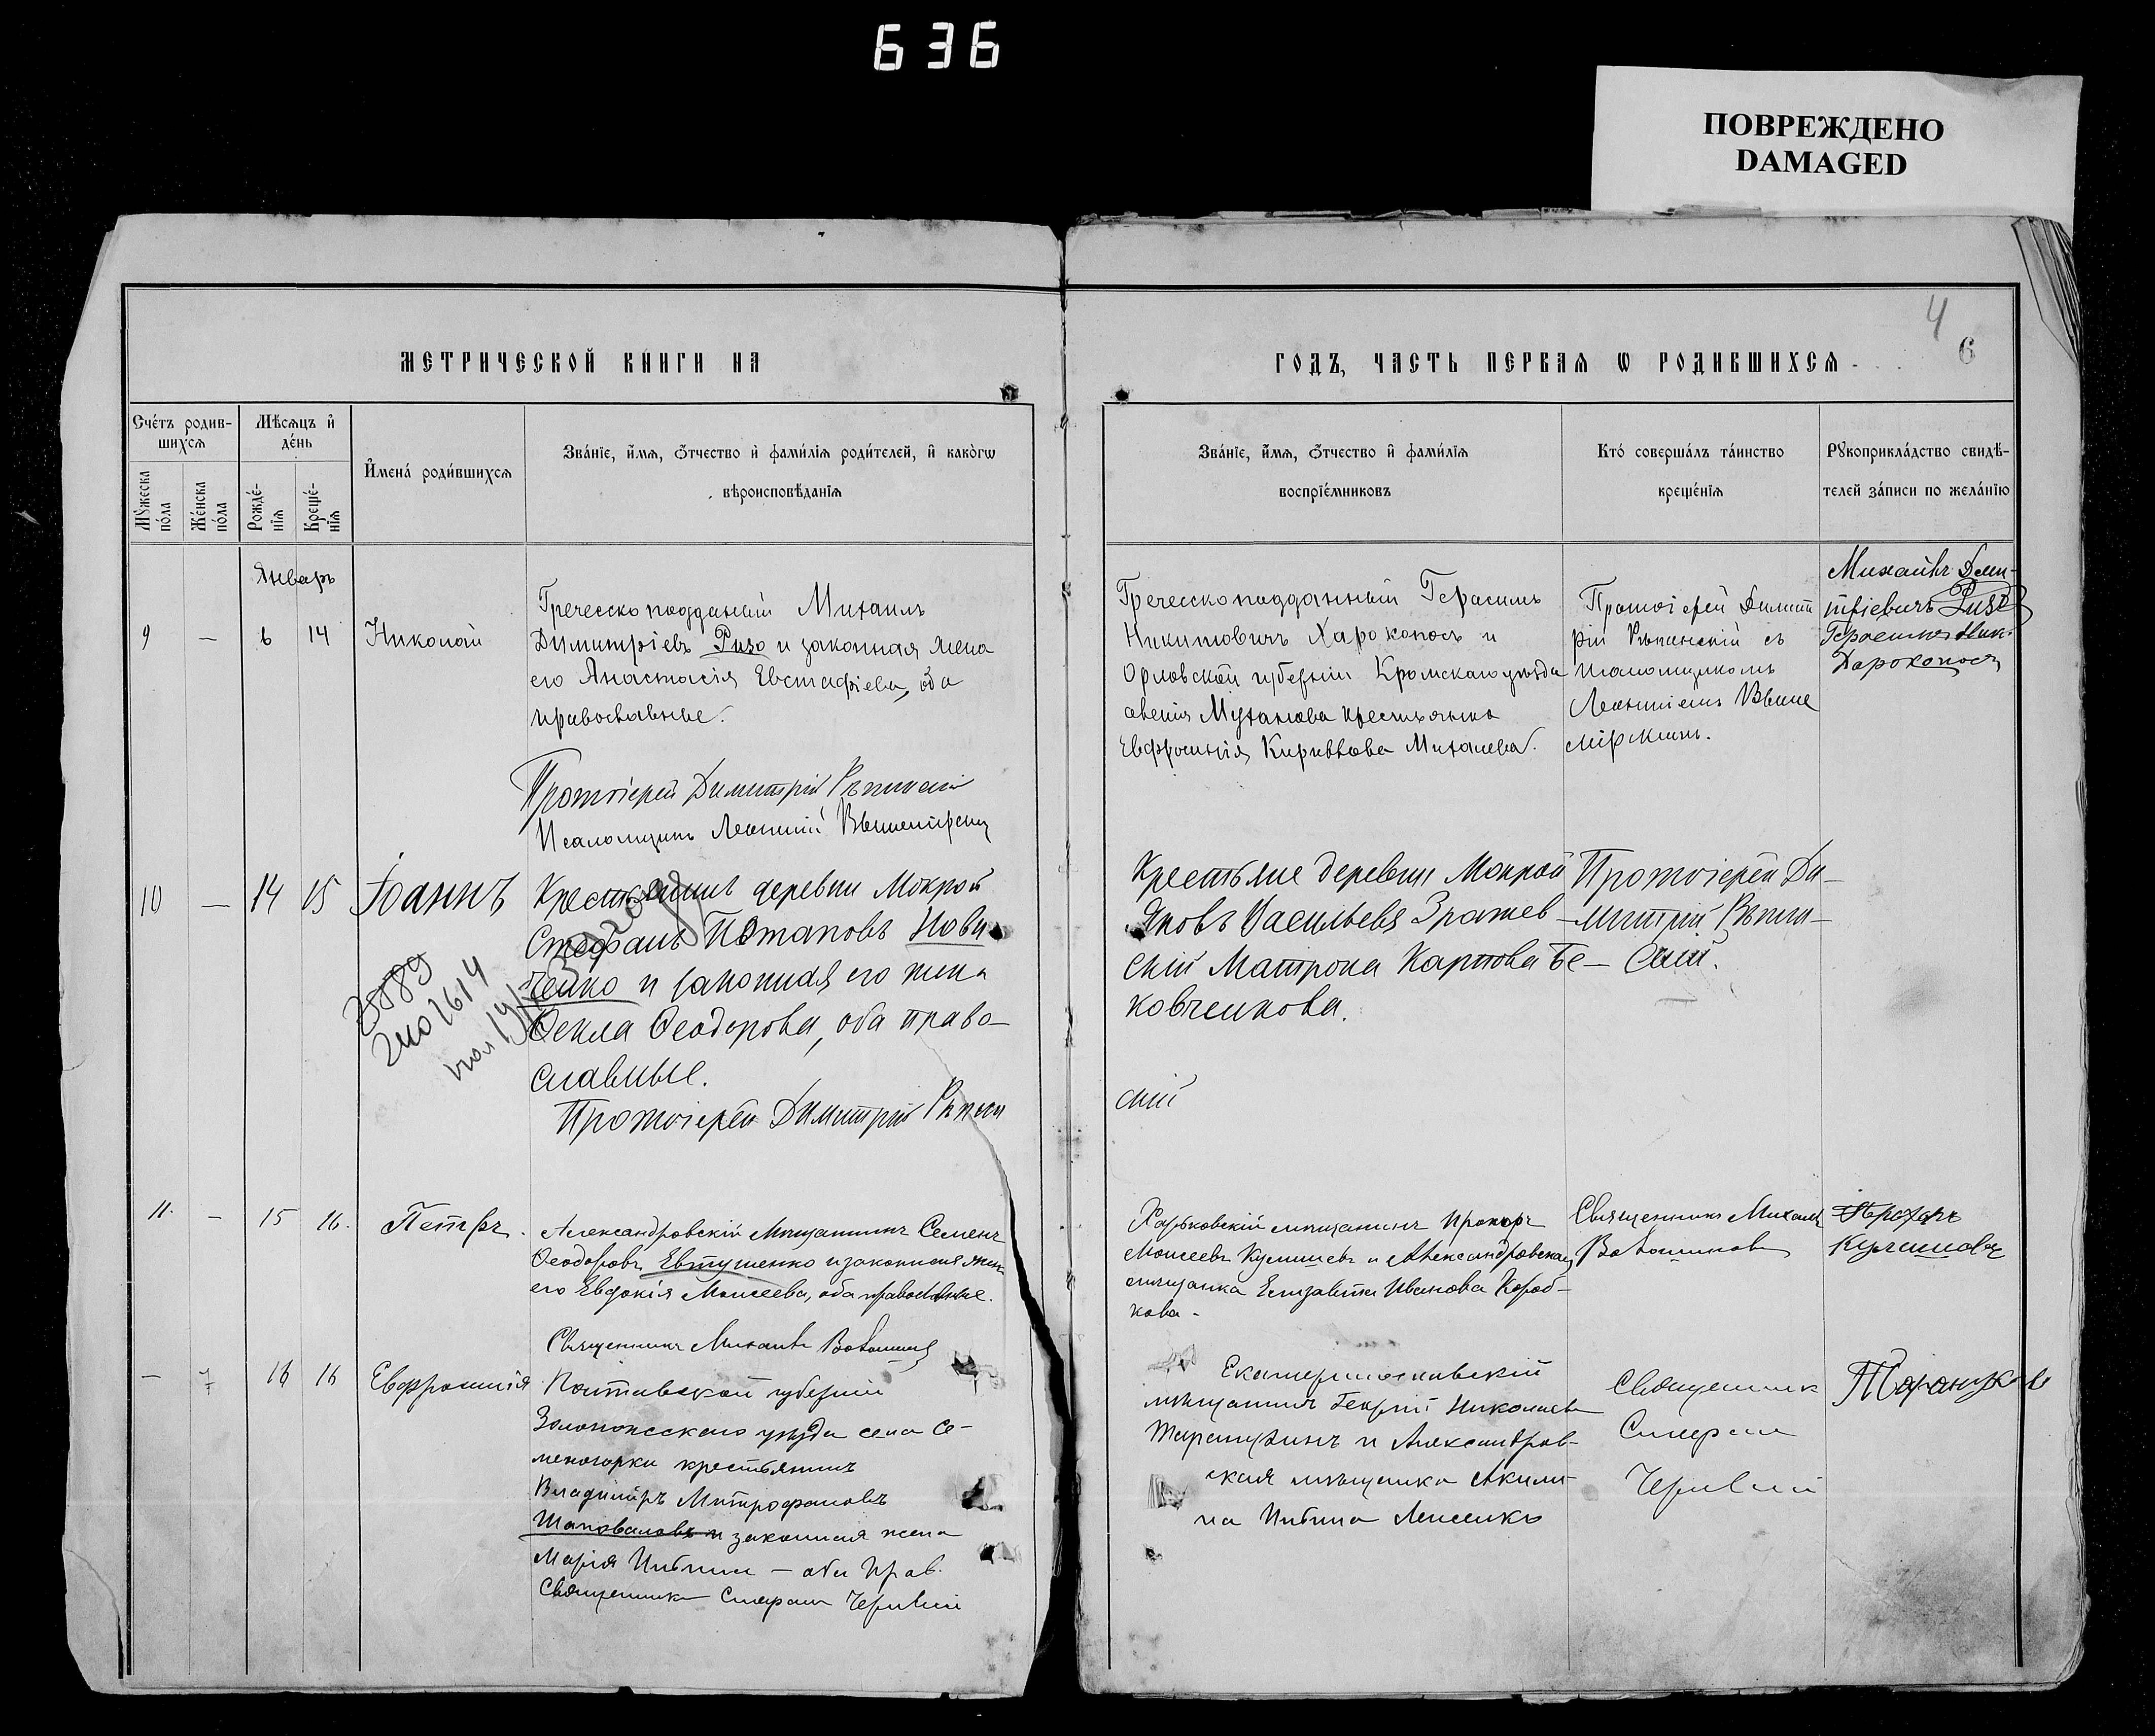 636
ПОВРЕЖДЕНО
DAMAGED
4
6
МЕТРИЧЕСКОЙ КНИГИ НА
ГОДЪ, ЧАСТЬ ПЕРВАЯ Ѡ РОДИВШИХСЯ
Сче́тъ родив-
шихсѧ
Мꙋжеска
по́ла
Же́нска
по́ла
Мѣсѧцъ и҆
де́нь
Рожде́-
нїѧ
Креще́-
нїѧ
И҆мена́ роди́вшихсѧ
Зва́нїе, и҆́мѧ, ѻ҆́тчество и҆ фами́лїѧ роди́телей, и҆ како́гѡ
вѣроисповѣ́данїѧ
Зва́нїе, и҆́мѧ, ѻ҆́тчество и҆ фами́лїѧ
воспрїе́мниковъ
Кто́ соверша́лъ та́инство
креще́нїѧ
Рꙋкоприкла́дство свидѣ́-
телей за́писи по жела́нїю
Январь
9 — 6 14 Николай
Греческоподданный Михаилъ
Димитріевъ Ризо и законная жена
его Анастасія Евстафіева, оба
православные.
Протоіерей Димитрій Рѣпинскій
Псаломщикъ Леонтій
Греческоподданный Герасимъ
Никитовичъ Харокопосъ и
Орловской губерніи Кромскаго уѣзда
крестьянка
Евфросинія Кириллова Михалева.
Протоіерей Димит
рій Рѣпинскій съ
псаломщикомъ
Леонтіемъ Выше
мірскимъ.
Михаилъ Дми-
тріевичъ Ризо
Герасимъ Ник.
Харокопосъ
10 — 14 15 Іоаннъ
Крестьянинъ деревни Мокрой
Стефанъ Потаповъ Нови
ченко и законная его жена
Ѳекла Ѳеодорова, оба право-
славные.
Протоіерей Димитрій Рѣпин
скій
Крестьяне деревни Мокрой
Яковъ Васильевъ Зражев-
скій Матрона Карпова Бе-
ковченкова.
Протоіерей Ди-
митрій Рѣпин-
скій.
11. — 15 16. Петръ.
Александровскій мѣщанинъ Семенъ
Ѳеодоровъ Евтушенко и законная жена
его Евдокія Моисеева, оба православные.
Священникъ Михаилъ Волошинъ
Харьковскій мѣщанинъ Прохоръ
Моисеевъ и Александровская
мѣщанка Елизавета Иванова Короб-
кова.
Священникъ Михаилъ
Волошиновъ
Прохоръ
— 7 16 16 Евфросинія
Полтавской губерніи
Золотоношскаго уѣзда села Се-
меногорки крестьянинъ
Владиміръ Митрофановъ
Шаповаловъ и законная жена
Марія — оба прав.
Священникъ Стефанъ
Екатеринославскій
мѣщанинъ Георгій Николаевъ
Таранухинъ и Александров-
ская мѣщанка Акили-
на
Священникъ
Стефанъ